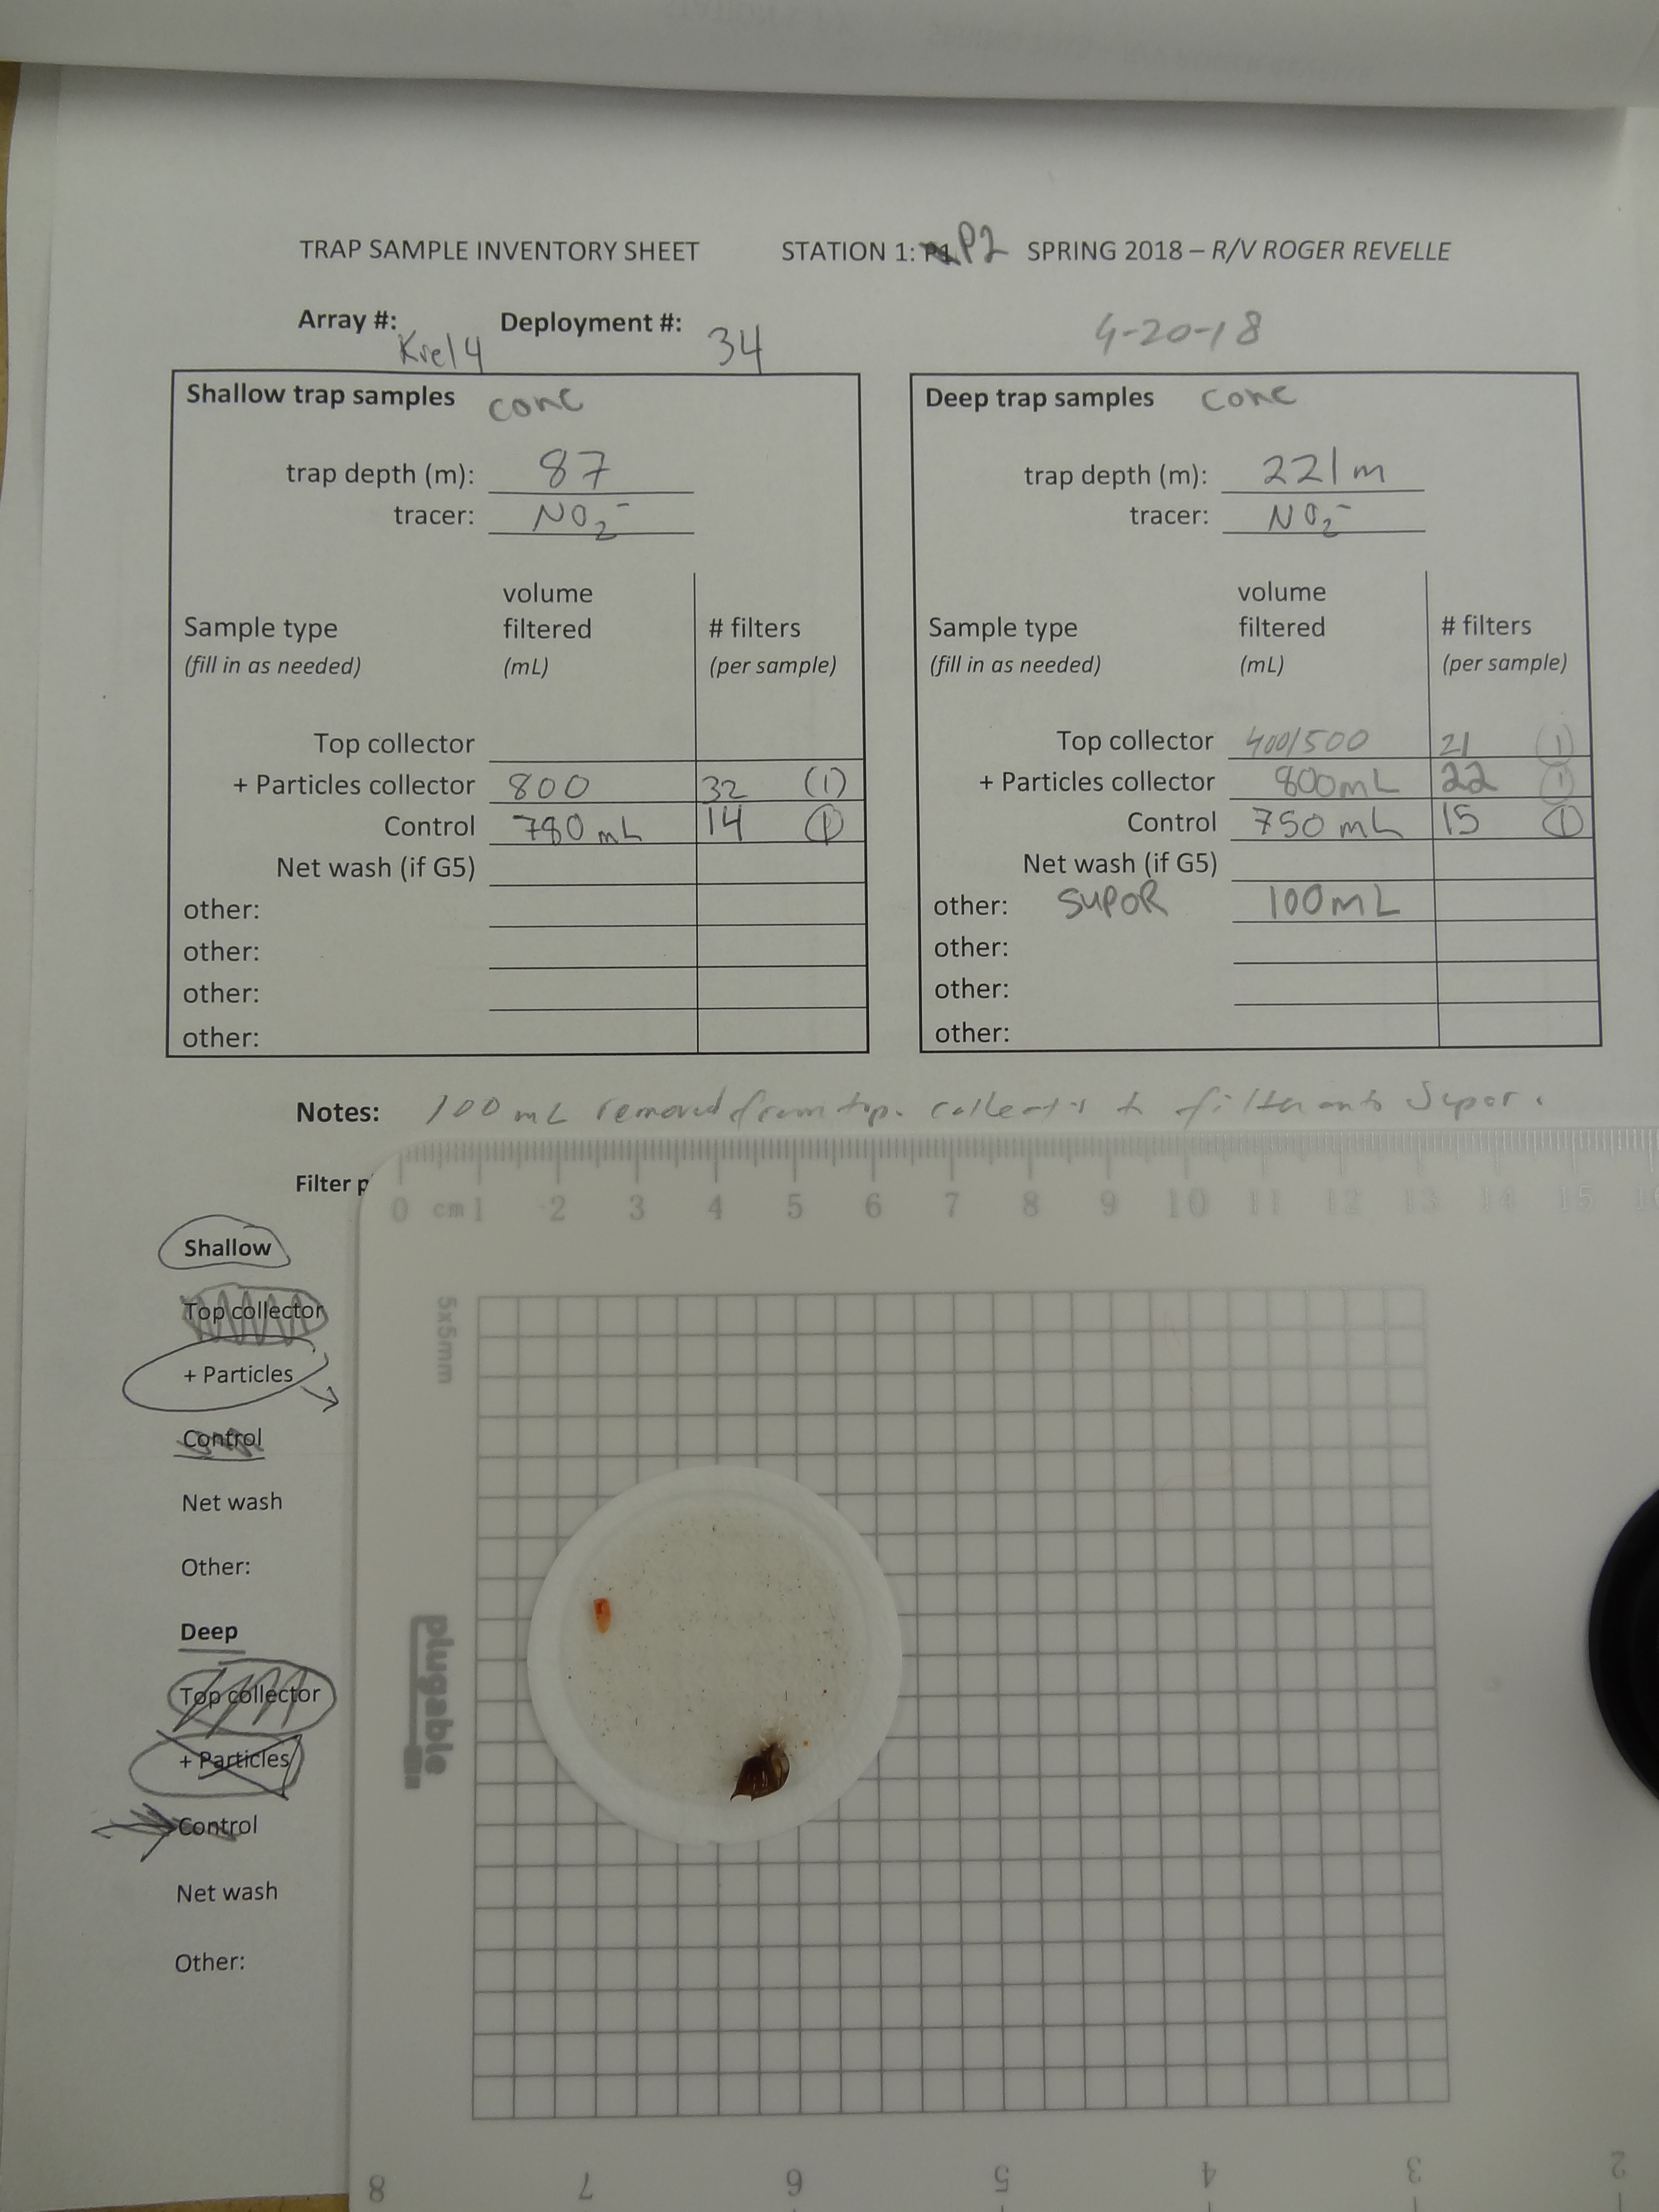 TRAP SAMPLE INVENTORY SHEET STATION 1: P1 P2 SPRING 2018 – R/V ROGER REVELLE
Array #: Kiel 4 Deployment #: 34 4-20-18
Shallow trap samples cone
trap depth (m): 87
tracer: NO2-
volume
Sample type filtered # filters
(fill in as needed) (mL) (per sample)
Top collector
+ Particles collector 800 32 (1)
Control 780 mL 14 (1)
Net wash (if G5)
other:
other:
other:
other:
Deep trap samples cone
trap depth (m): 221 m
tracer: NO2-
volume
Sample type filtered # filters
(fill in as needed) (mL) (per sample)
Top collector 400/500 21 (1)
+ Particles collector 800 mL 22 (1)
Control 750 mL 15 (1)
Net wash (if G5)
other: SUPOR 100 mL
other:
other:
other:
Notes: 100 mL removed from top. to filter onto Supor.
Filter p
0 cm 1 2 3 4 5 6 7 8 9 10 11 12 13 14 15
5x5mm
Shallow
Top collector
+ Particles
Control
Net wash
Other:
plugable
Deep
Top collector
+ Particles
Control
Net wash
Other:
8 7 6 5 4 3 2